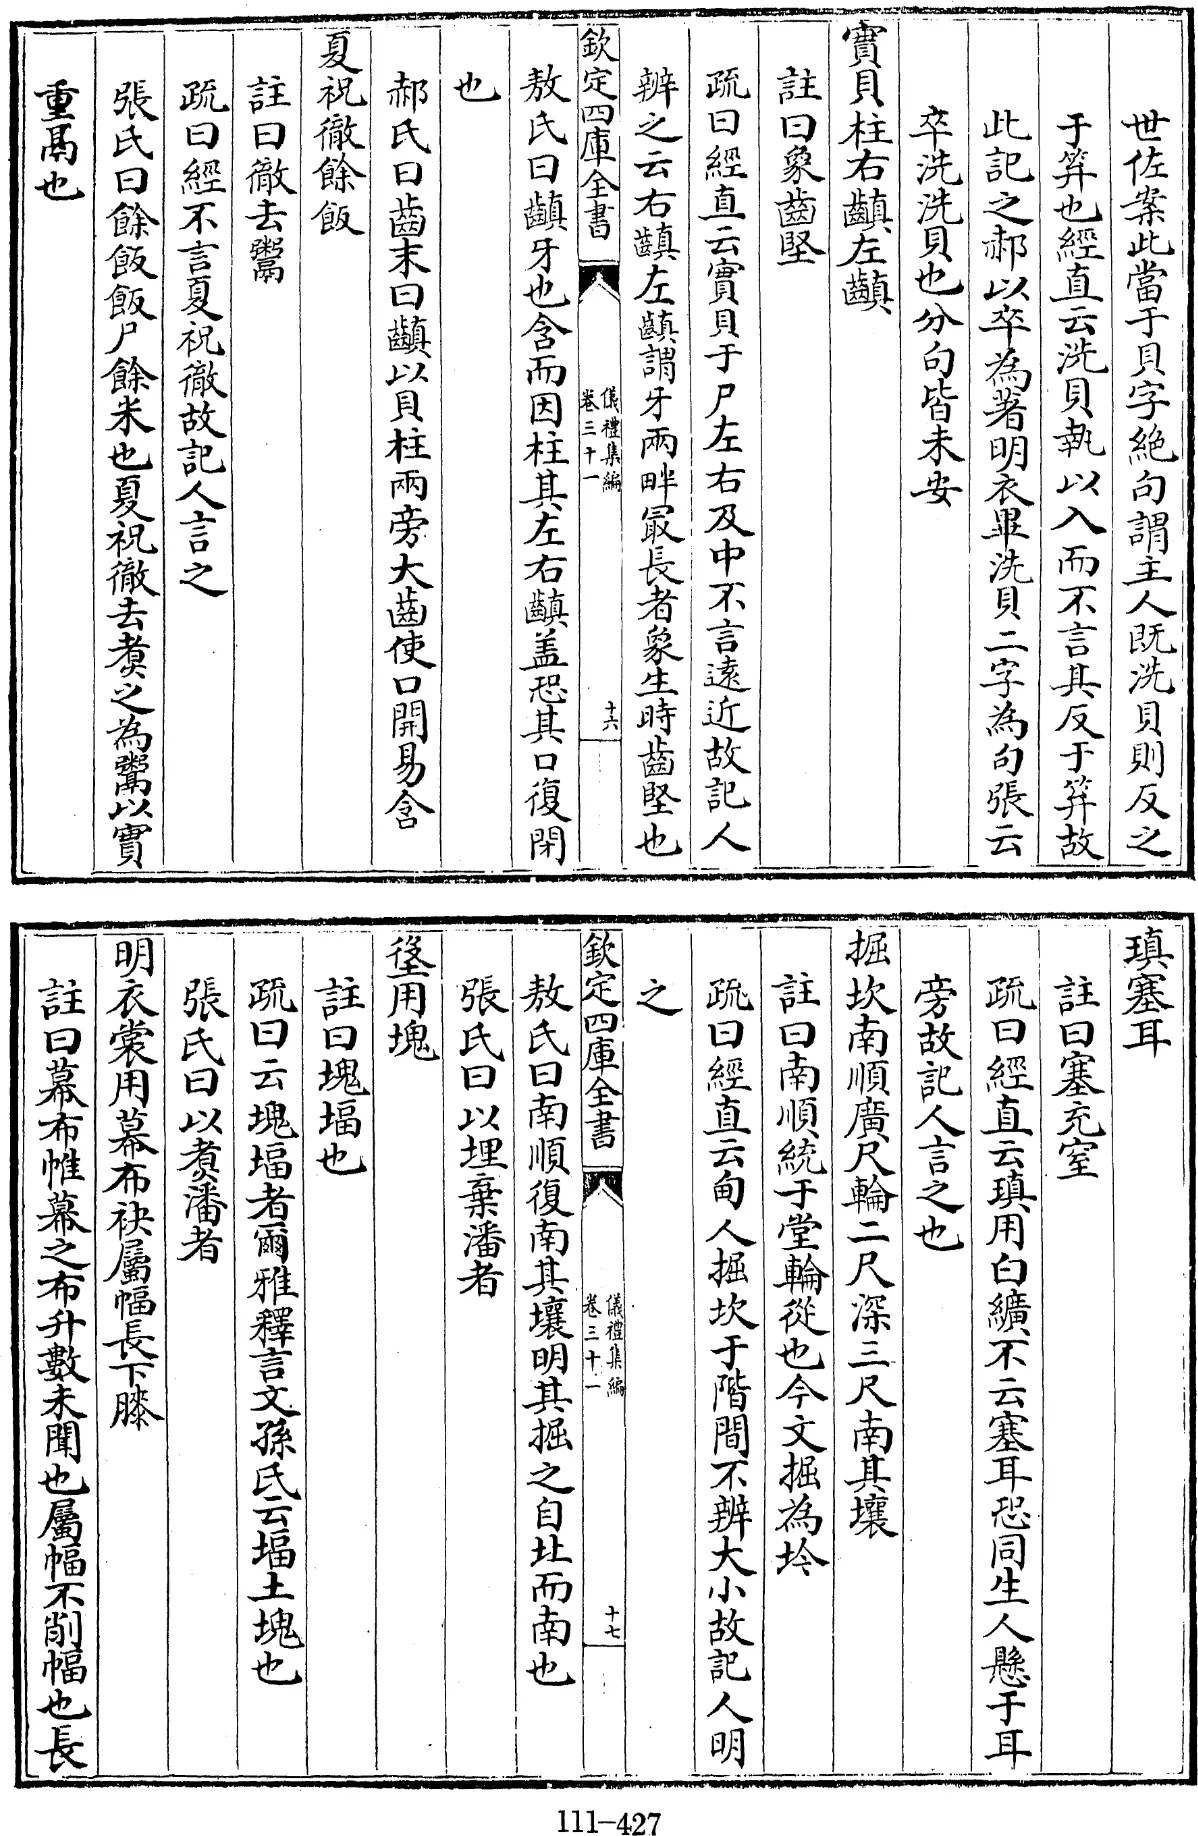 世佐案此當于貝字絶句謂主人既洗貝則反之
于笲也經直云洗貝執以入而不言其反于笲故
此記之郝以卒為著明衣畢洗貝二字為句張云
卒洗洗貝也分句皆未安
實貝柱右齻左齻
註曰象齒堅
疏曰經直云實貝于尸左右及中不言遠近故記人
辨之云右齻左齻謂牙兩畔最長者象生時齒堅也
欽定四庫全書
儀禮集編
卷三十一
十六
敖氏曰齻牙也含而因柱其左右齻盖恐其口復閉
也
郝氏曰齒末曰齻以貝柱兩旁大齒使口開易含
夏祝徹餘飯
註曰徹去鬻
疏曰經不言夏祝徹故記人言之
張氏曰餘飯飯尸餘米也夏祝徹去煑之為鬻以實
重鬲也
瑱塞耳
註曰塞充窒
疏曰經直云瑱用白纊不云塞耳恐同生人懸于耳
旁故記人言之也
掘坎南順廣尺輪二尺深三尺南其壤
註曰南順統于堂輪從也今文掘為坅
疏曰經直云甸人掘坎于階間不辨大小故記人明
之
欽定四庫全書
儀禮集編
卷三十一
十七
敖氏曰南順復南其壤明其掘之自北而南也
張氏曰以埋棄潘者
垼用塊
註曰塊堛也
疏曰云塊堛者爾雅釋言文孫氏云堛土塊也
張氏曰以煑潘者
明衣裳用幕布袂屬幅長下膝
註曰幕布帷幕之布升數未聞也屬幅不削幅也長
111-427